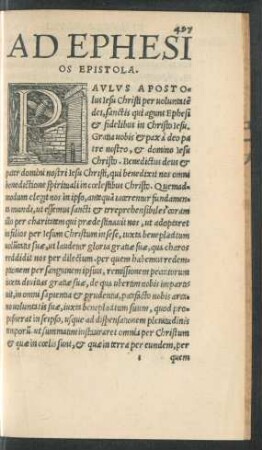 427
AD EPHESI
OS EPISTOLA.
PAVLVS APOSTO
lus Iesu Christi per uoluntatẽ
dei, sanctis qui agunt Ephesi
& fidelibus in Christo Iesu.
Gratia uobis & pax à deo pa
tre nostro, & domino Iesu
Christo. Benedictus deus &
pater domini nostri Iesu Christi, qui benedixit nos omni
benedictione spirituali in cœlestibus Christo. Quemad-
modum elegit nos in ipso, antequã iacerentur fundamen
ta mundi, ut essemus sancti & irreprehensibiles coram
illo per charitatem: qui prædestinauit nos, ut adoptaret
in filios per Iesum Christum in sese, iuxta beneplacitum
uoluntatis suæ, ut laudetur gloria gratiæ suæ, qua charos
reddidit nos per dilectum. per quem habemus redem-
ptionem per sanguinem ipsius, remissionem peccatorum
iuxta diuitias gratiæ suæ, de qua ubertim nobis imparti
uit, in omni sapientia & prudentia, patefacto nobis arca
no uoluntatis suæ, iuxta beneplacitum suum, quod pro-
posuerat in seipso, usque ad dispensationem plenitudinis
temporũ. ut summatim instauraret omnia per Christum
& quæ in cœlis sunt, & quæ in terra per eundem, per
quem